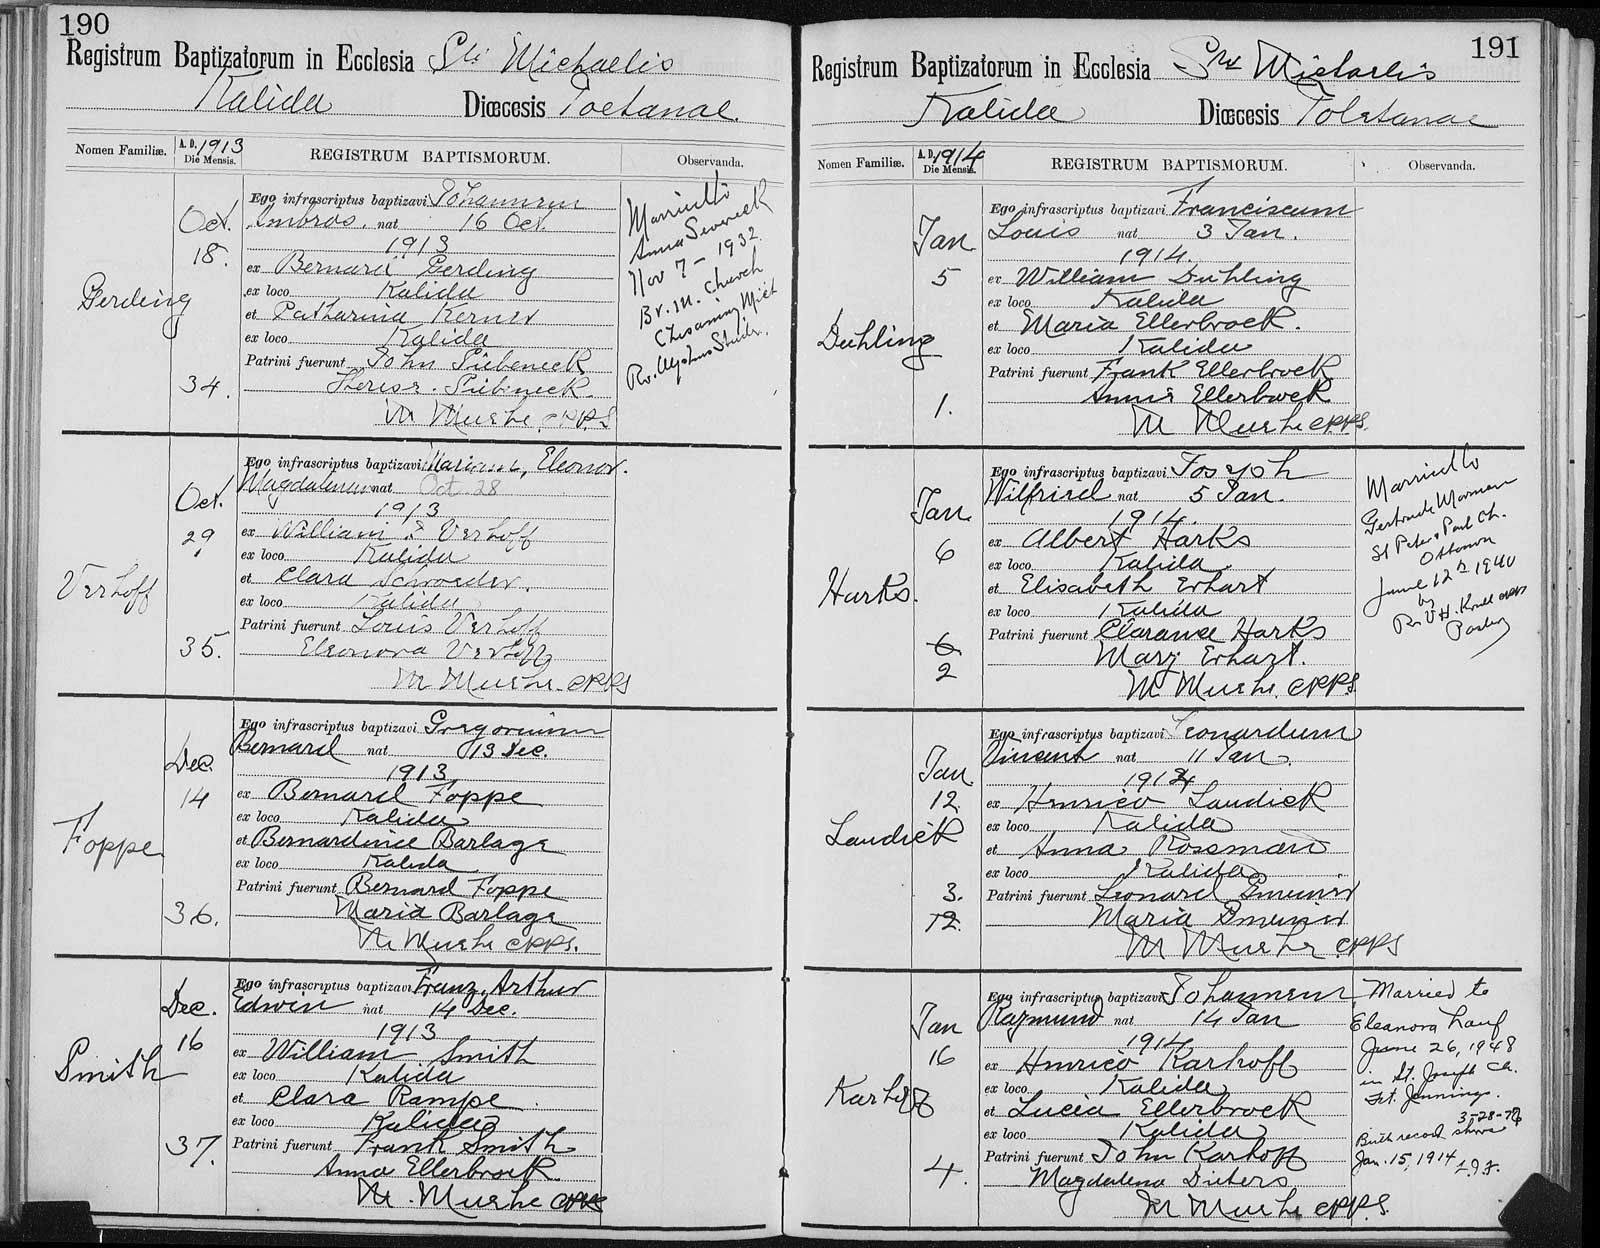 190
Registrum Baptizatorum in Ecclesia Sti Michaelis
Kalida Diœcesis Toetanae.
Nomen Familiæ. A. D. 1913 Die Mensis. REGISTRUM BAPTISMORUM. Observanda.
Gerding
Oct.
18.
34.
Ego infrascriptus baptizavi Johannem
Ambros. nat 16 Oct.
1913
ex Bernard Gerding
ex loco Kalida
et Catharina Kerner
ex loco Kalida
Patrini fuerunt John
M Mushe. CPPS
Married to
Anna
Nov 7 - 1932
Church
Chesaning Mich
Rv.
Verhoff
Oct.
29
35.
Ego infrascriptus baptizavi Eleonor.
nat Oct 28
1913
ex William Verhoff
ex loco Kalida
et Clara Schroeder.
ex loco Kalida
Patrini fuerunt Louis Verhoff
Eleonora Verhoff
M Mushe. CPPS
Foppe
Dec.
14
36.
Ego infrascriptus baptizavi Gregorium
Bernard nat 13 Dec.
1913
ex Bernard Foppe
ex loco Kalida
et Bernardine Barlage
ex loco Kalida
Patrini fuerunt Bernard Foppe
Maria Barlage
M Mushe CPPS.
Smith
Dec.
16
37.
Ego infrascriptus baptizavi Franz, Arthur
Edwin nat 14 Dec.
1913
ex William Smith
ex loco Kalida
et Clara Rampe
ex loco Kalida
Patrini fuerunt Frank Smith
Anna Ellerbrock
M. Mushe CPPS
191
Registrum Baptizatorum in Ecclesia Sti Michaelis
Kalida Diœcesis Toletanae
Nomen Familiæ. A. D. 1914 Die Mensis. REGISTRUM BAPTISMORUM. Observanda.
Duhling
Jan
5
1.
Ego infrascriptus baptizavi Franciscum
Louis nat 3 Jan.
1914
ex William Duhling
ex loco Kalida
et Maria Ellerbrock.
ex loco Kalida
Patrini fuerunt Frank Ellerbrock
Annie Ellerbrock
M Mushe CPPS.
Harks.
Jan.
6
6
2
Ego infrascriptus baptizavi Joseph
Wilfried nat 5 Jan.
1914.
ex Albert Harks
ex loco Kalida
et Elisabeth Erhart
ex loco Kalida
Patrini fuerunt Clarance Harks
Mary Erhart.
M Mushe. CPPS.
Married to
Gertrude
St Peter & Paul Ch.
Ottawa
June 12th 1940
by
Rv. V.H. CPPS
Pastor
Landick
Jan
12.
3.
12.
Ego infrascriptus baptizavi Leonardum
Vincent nat 11 Jan.
1914
ex Henrico Landick
ex loco Kalida
et Anna Rossman
ex loco Kalida
Patrini fuerunt Leonard
Maria
M Mushe CPPS
Karhoff
Jan
16
4.
Ego infrascriptus baptizavi Johannem
Raymund nat 14 Jan
1914
ex Henrico Karhoff
ex loco Kalida
et Lucia Ellerbrock
ex loco Kalida
Patrini fuerunt John Karhoff
Magdalena
M Mushe CPPS.
Married to
Eleanora Lauf
June 26, 1948
in St. Joseph Ch.
Ft. Jennings.
3-28-78
Birth record shows
Jan. 15, 1914